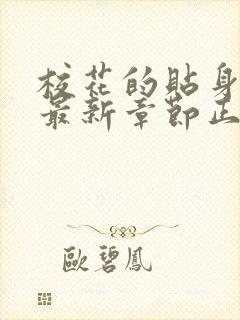 校花的貼身
最新章節正
歐碧鳳